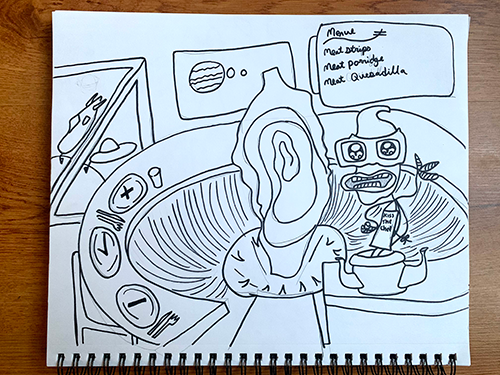 Menue
Meat strips
Meat porridge
Meat Quesadilla
kiss
the
chef